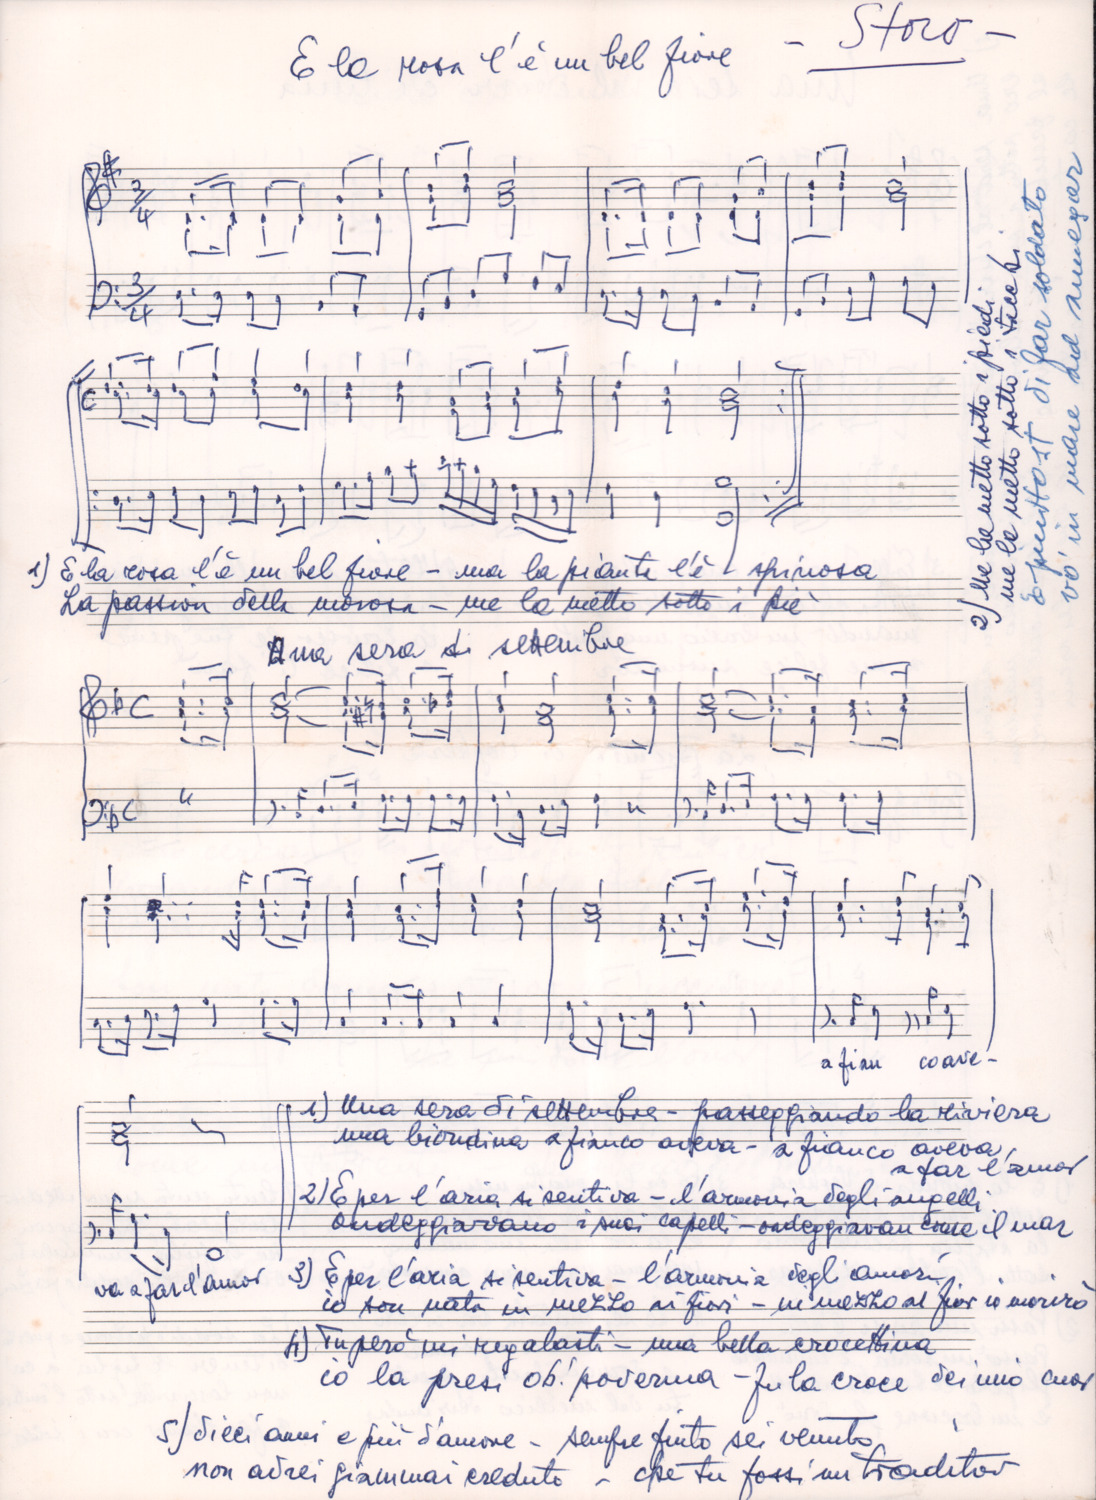 - Storo -
E la rosa l'è un bel fiore
3/4
3/4
1) E la rosa l'è un bel fiore - ma la pianta l'è spinosa
La passion della morosa - me la metto sotto i piè
2) Me la metto sotto i piedi
me la metto sotto i tacchi
e piuttost di far soldato
vo' in mare ad annegar
Una sera di settembre
C
C
a fian coave-
va a far l'amor
1) Una sera di settembre - passeggiando la riviera
una biondina a fianco aveva - a fianco aveva
a far l'amor
2) E per l'aria si sentiva - l'armonia degli angelli
ondeggiavano i suoi capelli - ondeggiavan come il mar
3) E per l'aria si sentiva - l'armonia degli amori
io son nata in mezzo ai fiori - in mezzo ai fior io morirò
4) Tu però mi regalasti - una bella crocettina
io la presi oh! poverina - fu la croce del mio cuor
5) dieci anni e più d'amore - sempre finto sei venuto
non avrei giammai creduto - che tu fossi un traditor